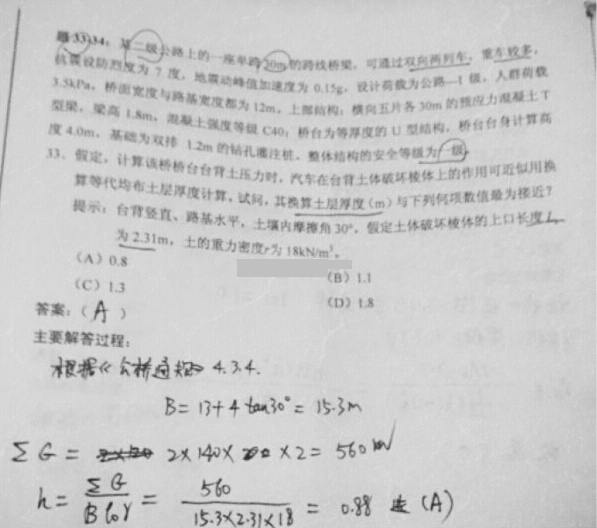 题33)34:某二级公路上的一座单跨30m的跨线桥梁,可通过双向两列车,重车较多,
抗震设防烈度为 7 度,地震动峰值加速度为 0.15g,设计荷载为公路—I 级,人群荷载
3.5kPa,桥面宽度与路基宽度都为 12m,上部结构:横向五片各 30m 的预应力混凝土 T
型梁,梁高 1.8m,混凝土强度等级 C40;桥台为等厚度的 U 型结构,桥台台身计算高
度 4.0m,基础为双排 1.2m 的钻孔灌注桩。整体结构的安全等级为一级。
33.假定,计算该桥桥台台背土压力时,汽车在台背土体破坏棱体上的作用可近似用换
算等代均布土层厚度计算。试问,其换算土层厚度(m)与下列何项数值最为接近?
提示:台背竖直、路基水平,土壤内摩擦角 30°,假定土体破坏棱体的上口长度L
为 2.31m,土的重力密度r为 18kN/m³。
(A)0.8
(B)1.1
(C)1.3
(D)1.8
答案:( A )
主要解答过程:
根据《公桥通规》4.3.4.
B = 13+4 tan30° = 15.3m
ΣG = 2×140× ×2 = 560 kN
h = ΣG / B l0 γ = 560 / 15.3×2.31×18 = 0.88 选 (A)